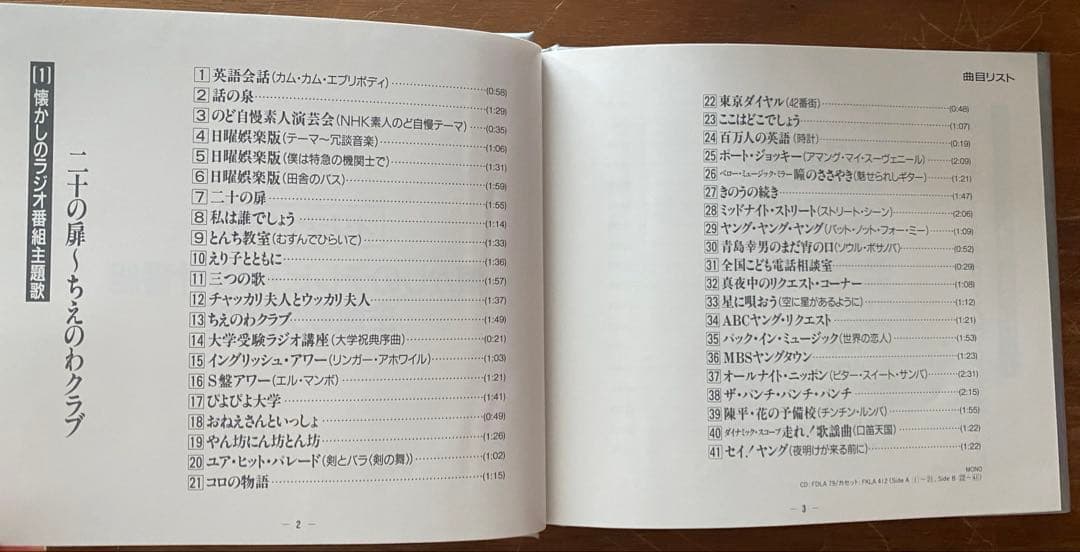 [1] 懐かしのラジオ番組主題歌
二十の扉〜ちえのわクラブ
1 英語会話(カム・カム・エブリボディ)(0:58)
2 話の泉(1:29)
3 のど自慢素人演芸会(NHK素人のど自慢テーマ)(0:35)
4 日曜娯楽版(テーマ〜冗談音楽)(1:06)
5 日曜娯楽版(僕は特急の機関士で)(1:31)
6 日曜娯楽版(田舎のバス)(1:59)
7 二十の扉(1:55)
8 私は誰でしょう(1:14)
9 とんち教室(むすんでひらいて)(1:33)
10 えり子とともに(1:36)
11 三つの歌(1:57)
12 チャッカリ夫人とウッカリ夫人(1:37)
13 ちえのわクラブ(1:49)
14 大学受験ラジオ講座(大学祝典序曲)(0:21)
15 イングリッシュ・アワー(リンガー・アホワイル)(1:03)
16 S盤アワー(エル・マンボ)(1:21)
17 ぴよぴよ大学(1:41)
18 おねえさんといっしょ(0:49)
19 やん坊にん坊とん坊(1:26)
20 ユア・ヒット・パレード(剣とバラ〈剣の舞〉)(1:02)
21 コロの物語(1:15)
— 2 —
曲目リスト
22 東京ダイヤル(42番街)(0:48)
23 ここはどこでしょう(1:07)
24 百万人の英語(時計)(0:19)
25 ポート・ジョッキー(アマング・マイ・スーヴェニール)(2:09)
26 ペロー・ミュージック・ミラー 瞳のささやき(魅せられしギター)(1:21)
27 きのうの続き(1:47)
28 ミッドナイト・ストリート(ストリート・シーン)(2:06)
29 ヤング・ヤング・ヤング(バット・ノット・フォー・ミー)(1:09)
30 青島幸男のまだ宵の口(ソウル・ボサノバ)(0:52)
31 全国こども電話相談室(0:29)
32 真夜中のリクエスト・コーナー(1:08)
33 星に唄おう(空に星があるように)(1:12)
34 ABCヤング・リクエスト(1:21)
35 パック・イン・ミュージック(世界の恋人)(1:53)
36 MBSヤングタウン(1:23)
37 オールナイト・ニッポン(ビター・スイート・サンバ)(2:31)
38 ザ・パンチ・パンチ・パンチ(2:15)
39 陳平・花の予備校(チンチン・ルンバ)(1:55)
40 ダイナミック・スコープ 走れ!歌謡曲(口笛天国)(1:22)
41 セイ!ヤング(夜明けが来る前に)(1:22)
MONO
CD:FDLA 79/カセット:FKLA 412(Side A 1〜21, Side B 22〜41)
— 3 —